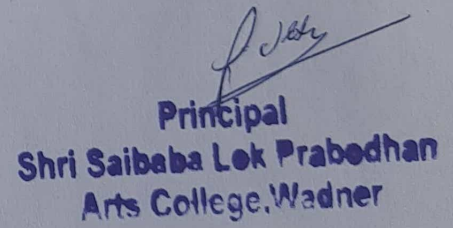 Principal
Shri Saibaba Lok Prabodhan
Arts College.Wadner